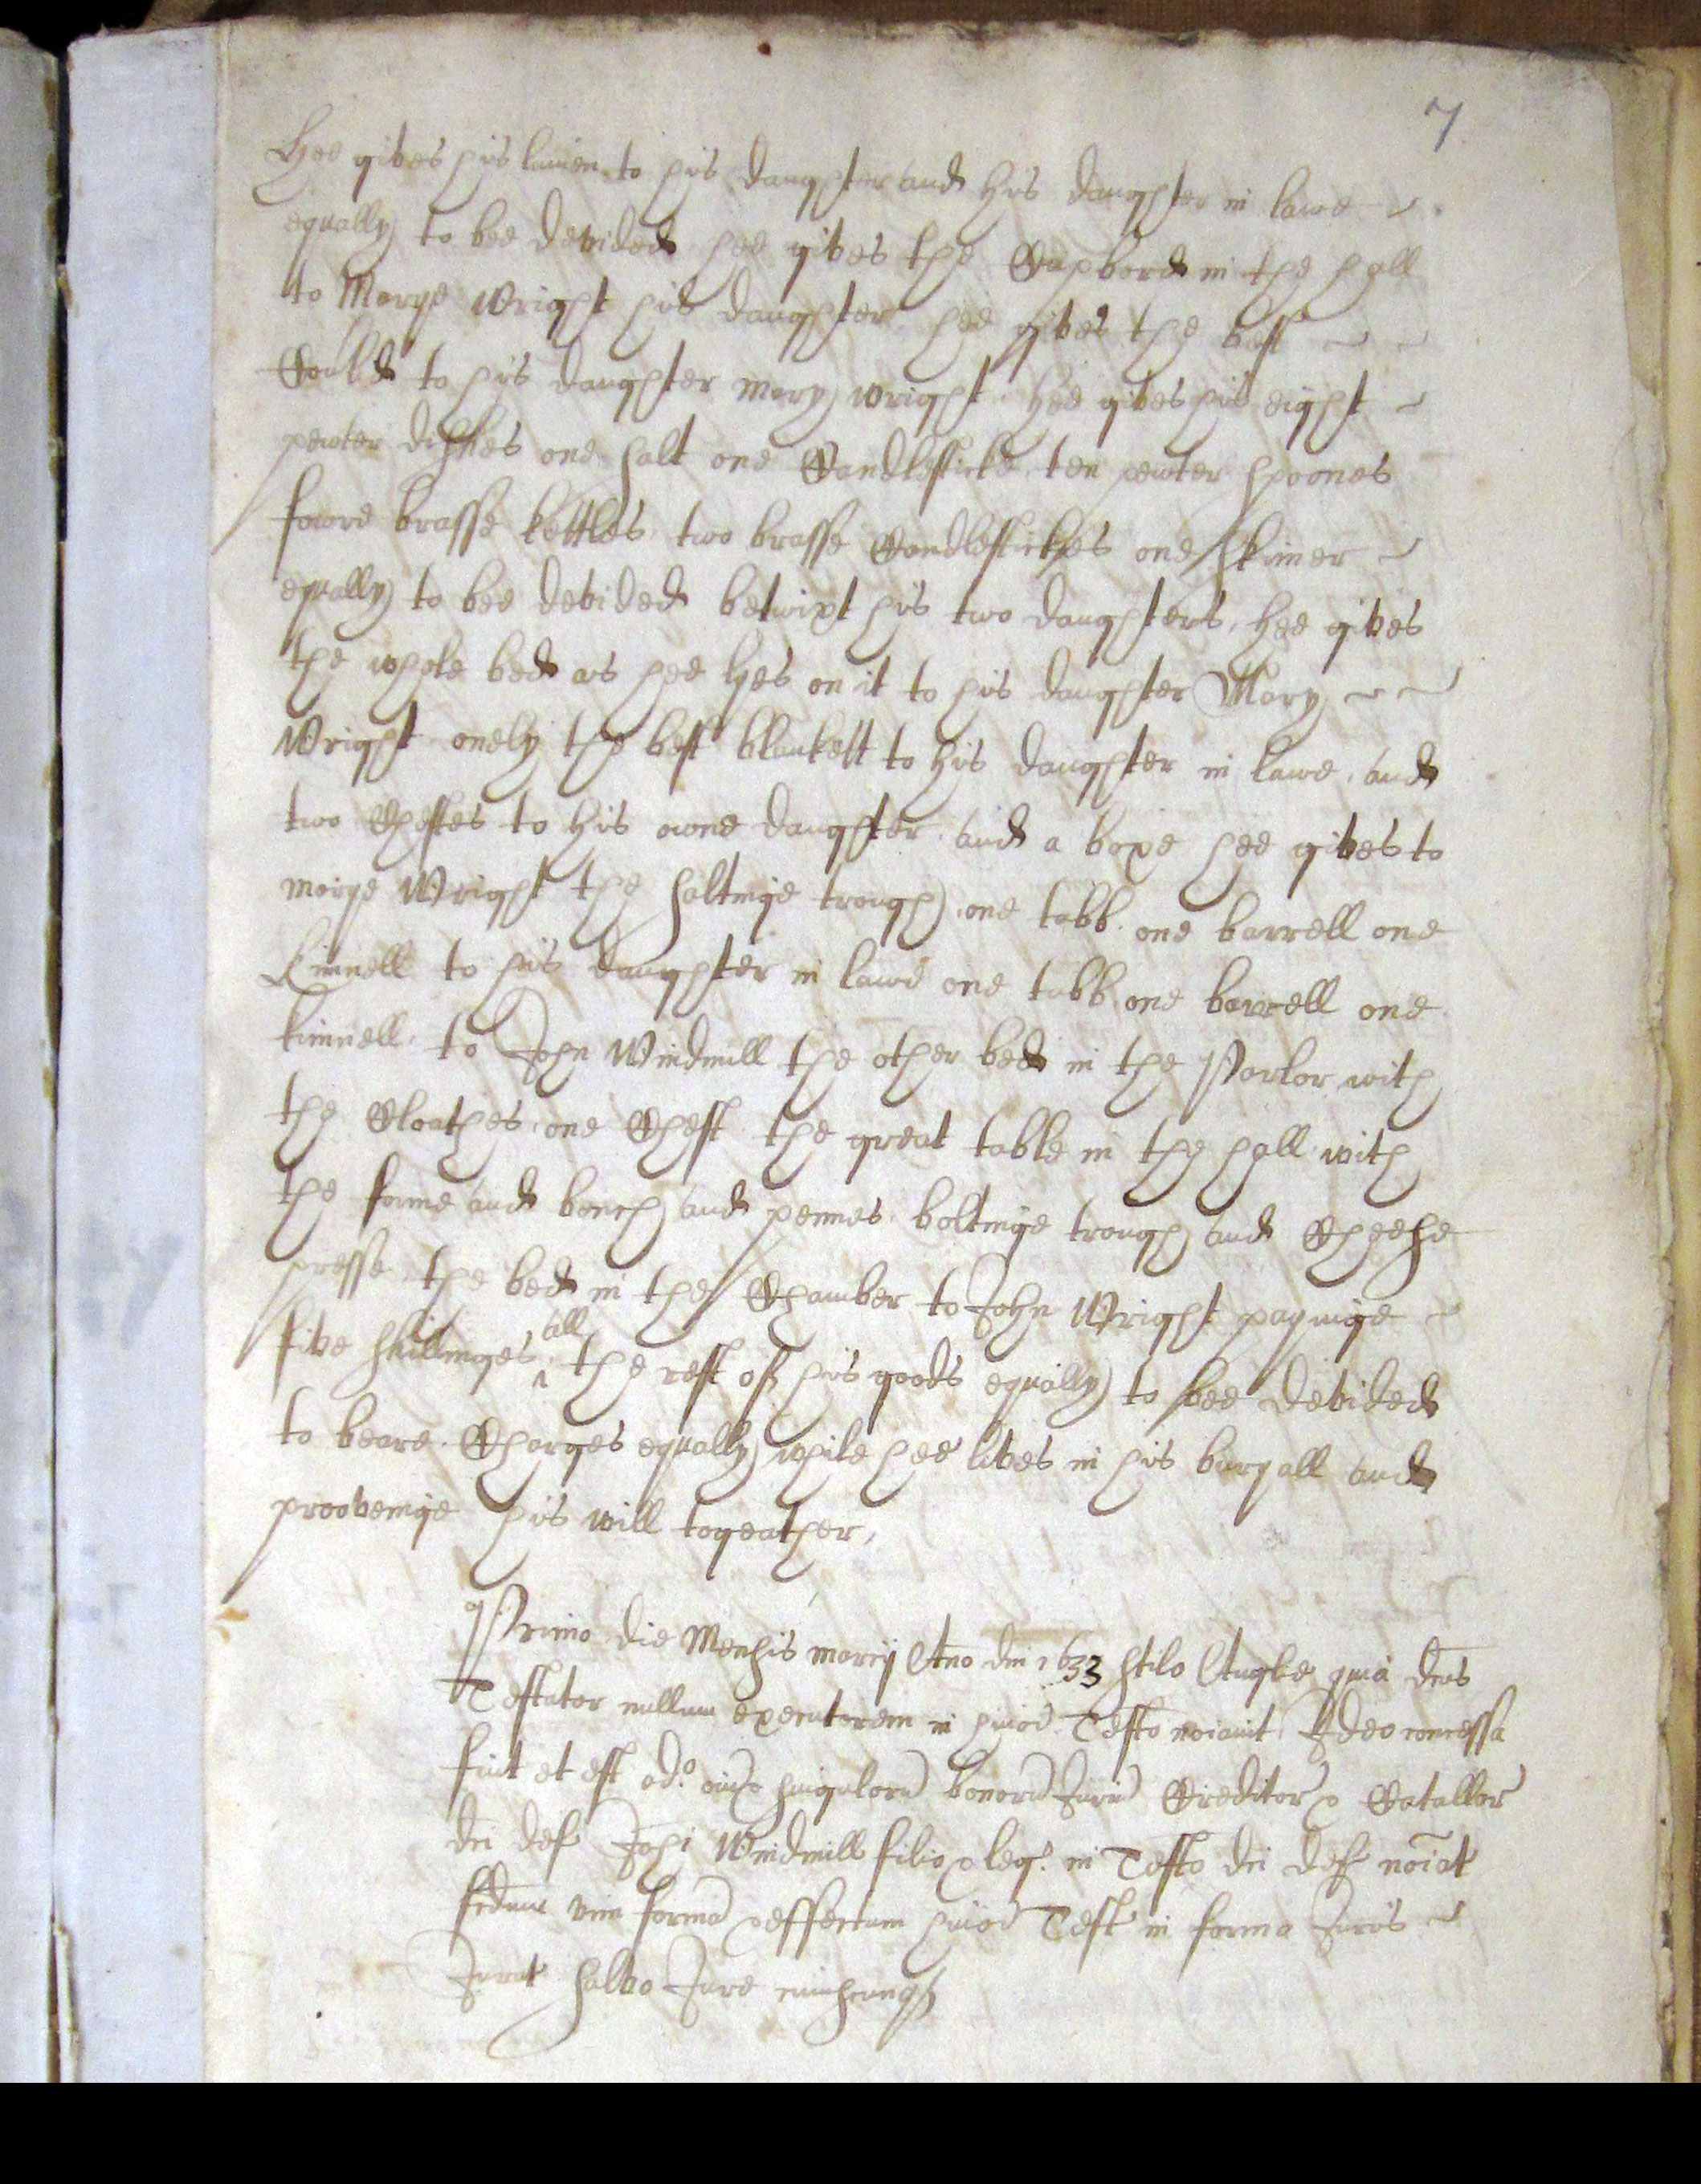 7
Hee gives his linnen to his daughter and his daughter in lawe
equally to bee devided hee gives the Cupbord in the hall
to Marye Wright his daughter hee gives the best
to his daughter Mary Wright. Hee gives his eight
pewter dishes one salt one Candlesticke ten pewter spoones
fowre brasse kettles two brasse Candlestickes one skimer
equally to bee devided betwixt his two daughters, hee gives
the whole bed as hee lyes on it to his daughter Mary
Wright onely the best blankett to his daughter in lawe, and
two Chestes to his owne daughter and a boxe hee gives to
Marye Wright the saltinge trough, one tubb one barrell one
Kimnell to his daughter in lawe one tubb one barrell one
kimnell, to John Windmill the other bed in the Parlor with
the Cloathes, one Chest the great table in the hall with
the forme and bench and pennes boltinge trough and Cheese
presse the bed in the Chamber to John Wright payinge
five shillinges, all the rest of his goods equally to bee devided
to beare Charges equally while hee lives in his buryall and
proovenge his will togeather,
Primo die Mensis marcij Ano dni 1633 stilo Anglie quia dcus
Testator nullum executorem in huiod Testo noiavit Ideo concessa
fuit et est ad.o oiu singuloru bonoru Juriu Creditor Catallor
dci def Johi Windmill filio leg. in Testo dci def noiat
scdum vim forma effectum huiod Test in forma Juris
Jurat salvo Jure cuiuscunq